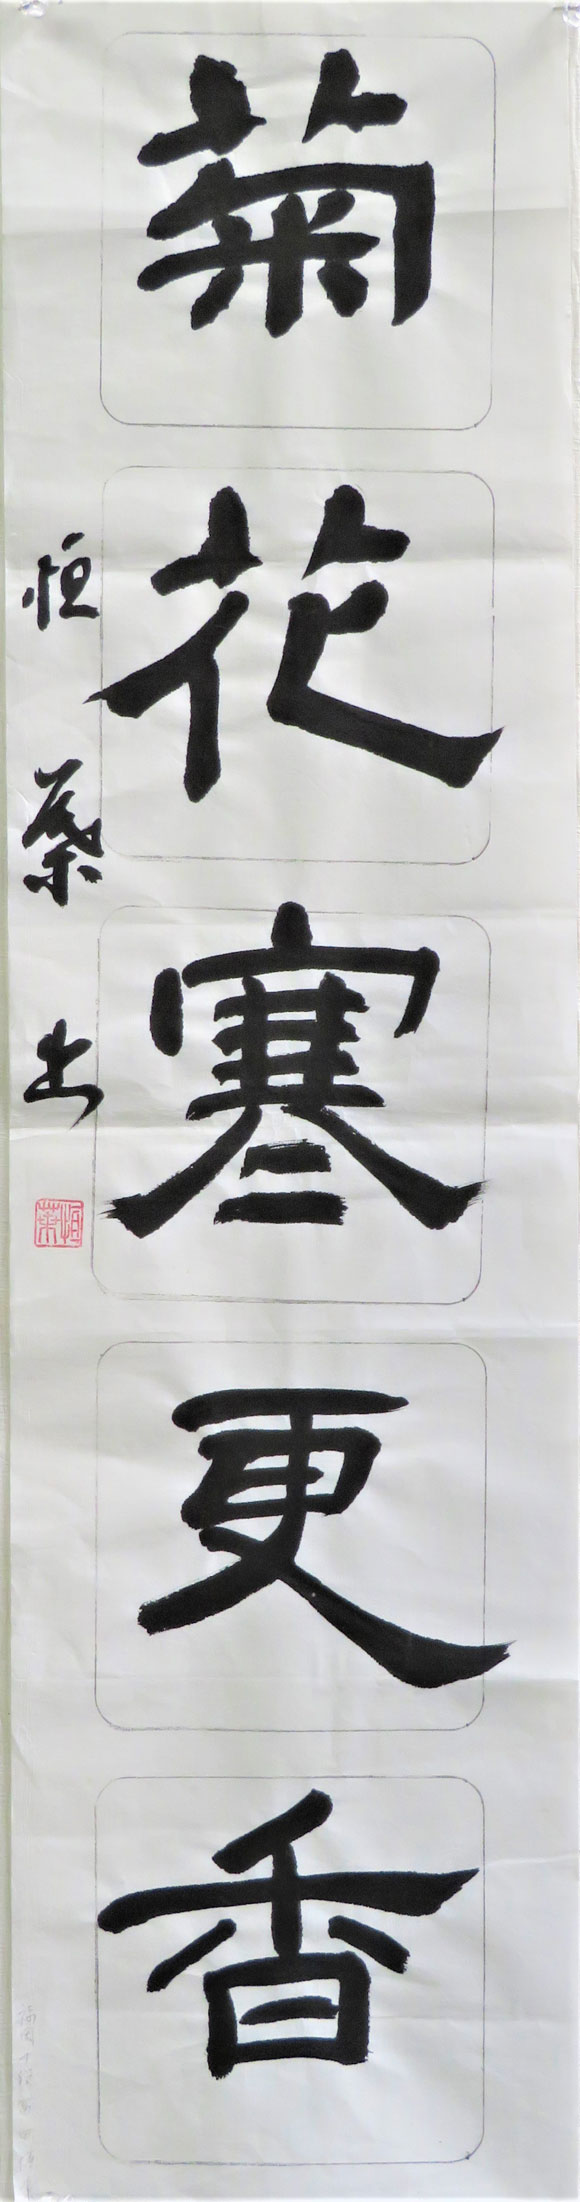 菊花寒更香
恒棻书
恒棻